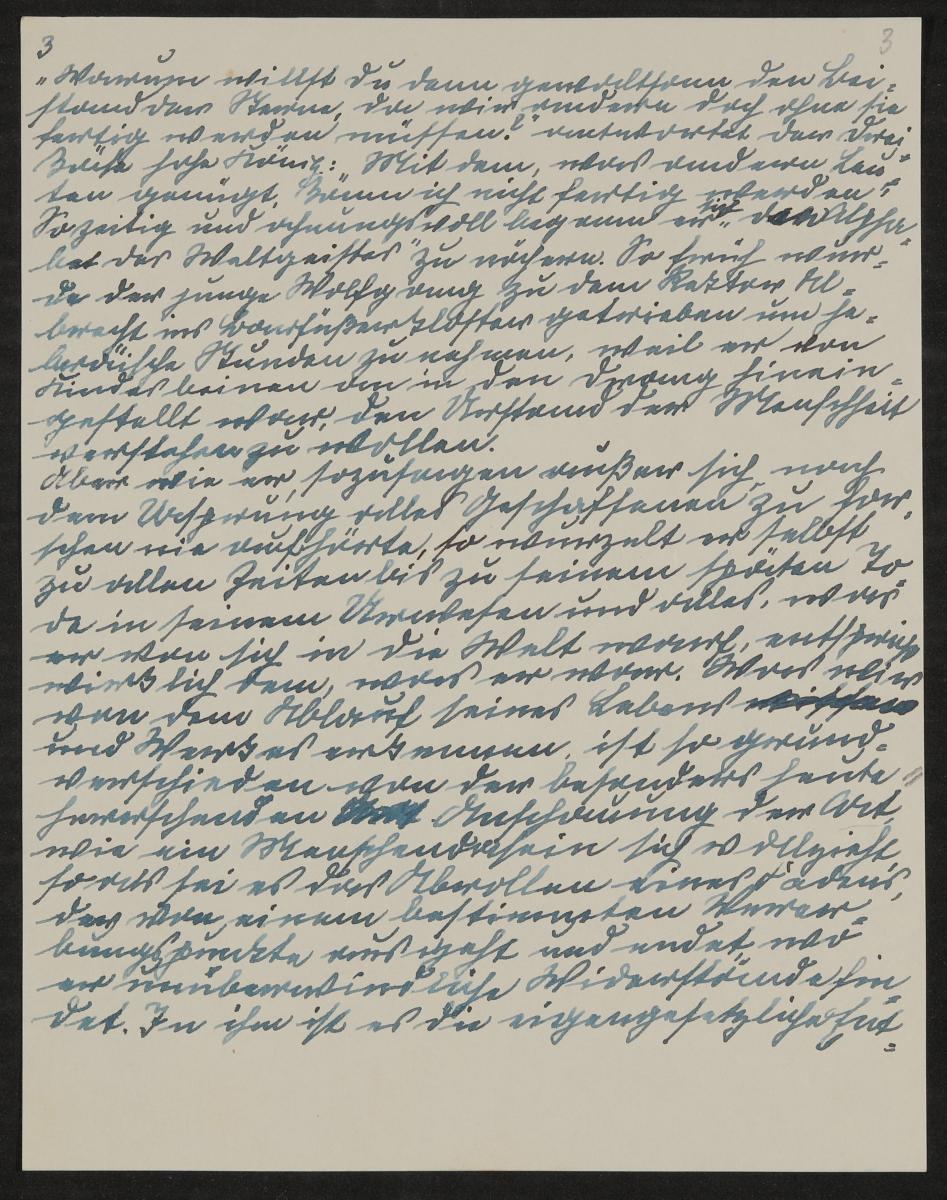 3 3
„Warum willst du denn gewaltsam den Bei=
stand der Sterne, da wir andern doch ohne sie
fertig werden müssen?" antwortet der drei=
käse hohe König: „Mit dem, was andern Leu=
ten genügt, kann ich nicht fertig werden."
So zeitig und ahnungsvoll begann er sich „dem Alpha=
bet des Weltgeistes" zu nähern. So früh wur=
de der junge Wolfgang zu dem Rektor Al=
brecht ins Barfüßerkloster getrieben um he=
bräische Stunden zu nehmen, weil er von
Kindesbeinen an in den Drang hinein=
gestellt war, den Urstand der Menschheit
verstehen zu wollen.
Aber wie er, sozusagen außer sich, nach
dem Ursprung alles Geschaffenen zu for=
schen nie aufhörte, so wurzelt er selbst
zu allen Zeiten bis zu seinem späten To
de in seinem Urwesen und alles, was
er von sich in die Welt warf, entsprich
wirklich dem, was er war. Was wir
von dem Ablauf seines Lebens
und Werkes erkennen, ist so grund=
verschieden von der besonders heute
herrschenden Anschauung der Art,
wie ein Menschendasein sich vollzieht,
so als sei es das Abrollen eines Fadens,
der von einem bestimmten
punkte ausgeht und endet, wo
er unüberwindliche Widerstände fin
det. In ihm ist es die eigengesetzliche Ent=